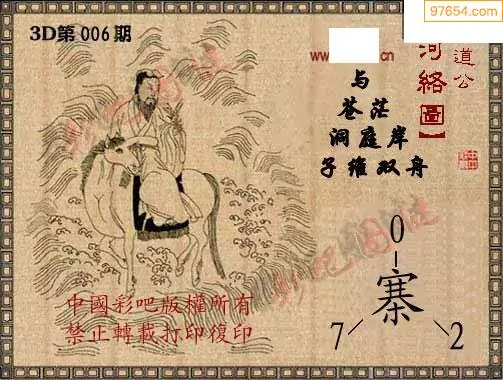 97654.com
3D第006期
www.
cn
道公
河絡【圖】
与
苍茫
洞庭岸
子维双舟
彩吧图谜
彩吧图谜
0
寨
7
2
中國彩吧版權所有
禁止轉載打印復印